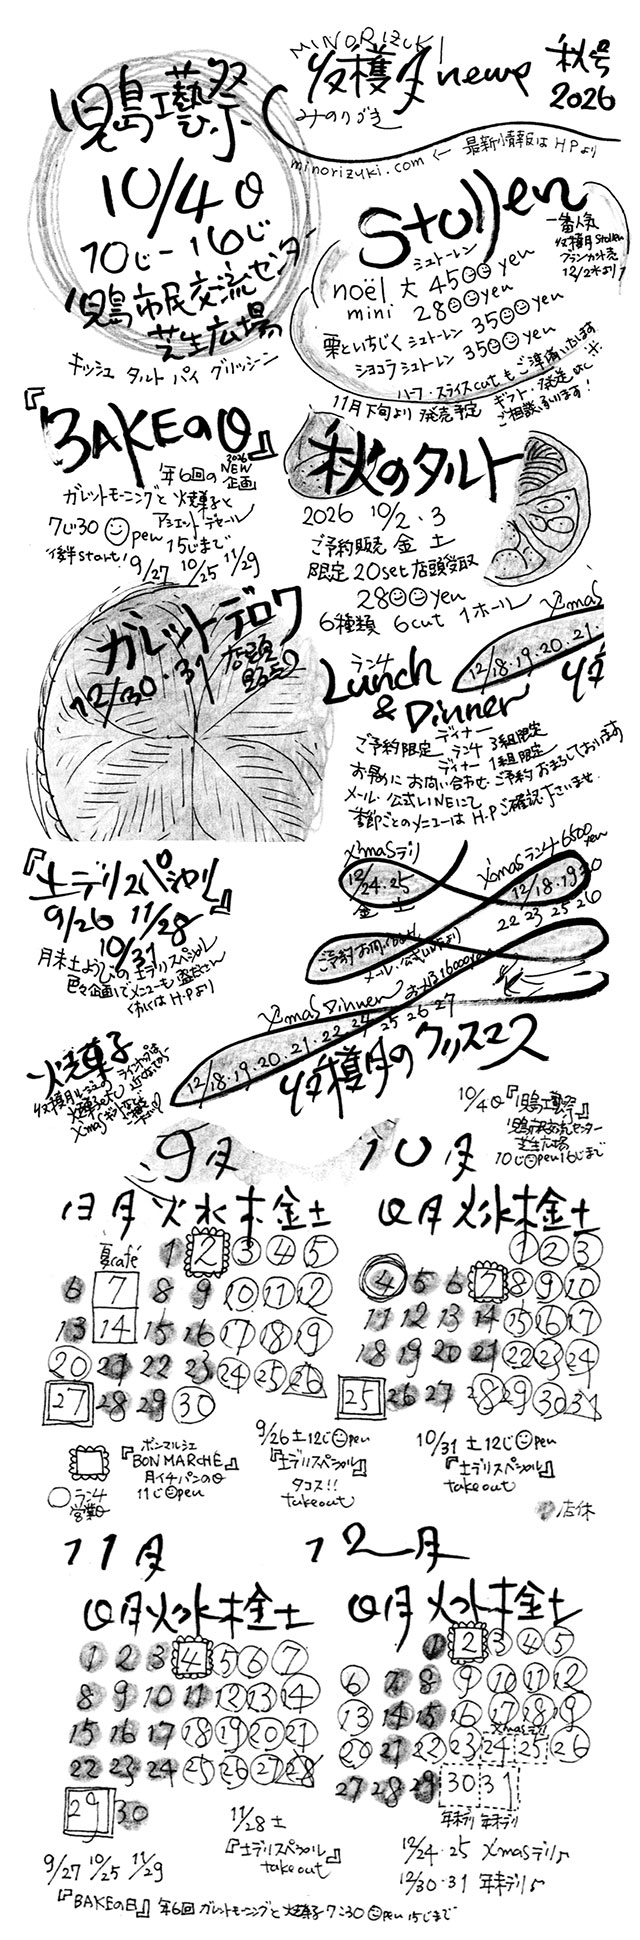 MINORIZUKI
収穫月news
みのりづき
秋号
2026
minorizuki.com ← 最新情報はHPより
児島工藝祭
10/4日
10じ-16じ
児島市民交流センター
芝生広場
キッシュ タルト パイ グリッシーニ
Stollen
シュトーレン
一番人気
収穫月Stollen
12/2水より
noël 大 4500yen
mini 2800yen
栗といちじく シュトーレン 3500yen
ショコラシュトーレン 3500yen
ハーフ・スライスcutもご準備いたします
11月下旬より発売予定
ギフト・発送など
ご相談承ります!
『BAKEの日』
2026
NEW
企画
年6回の
ガレットモーニングと焼菓子と
アシェットデセール
7じ30 open 15じまで
後半start! 9/27 10/25 11/29
秋のタルト
2026 10/2・3
ご予約販売 金 土
限定20set店頭受取
2800yen
6種類 6cut 1ホール
ガレットデロワ
12/30・31
Xmas
12/18・19・20・21・
ランチ
Lunch
& Dinner
ディナー
ご予約限定 ランチ 3組限定
ディナー 1組限定
お早めにお問い合わせ・ご予約お待ちしております
メール・公式LINEにて
季節ごとのメニューはH.Pご確認下さいませ
『土デリスペシャル』
9/26 11/28
10/31
月末土ようびの土デリスペシャル
色々企画でメニューも盛だくさん
くわしくはH・Pより
X'masデリ
12/24・25
X'masランチ6500yen
12/18・19・20
22 23 25 26
ご予約お問い合わせ
メール・公式LINEより
X'mas Dinner お一人様16000yen
12/18・19・20・21・22・24・25・26・27
収穫月のクリスマス
焼菓子
10/4日『児島工藝祭』
児島市民交流センター
芝生広場
10じopen16じまで
9月
日月火水木金土
夏café
1 2 3 4 5
6 7 8 9 10 11 12
13 14 15 16 17 18 19
20 21 22 23 24 25 26
27 28 29 30
10月
日月火水木金土
1 2 3
4 5 6 7 8 9 10
11 12 13 14 15 16 17
18 19 20 21 22 23 24
25 26 27 28 29 30 31
ボンマルシェ
『BON MARCHÉ』
月イチパンの日
11じopen
ランチ
営業日
9/26 土12じopen
『土デリスペシャル』
タコス!!
takeout
10/31 土12じopen
『土デリスペシャル』
takeout
店休
11月
日月火水木金土
1 2 3 4 5 6 7
8 9 10 11 12 13 14
15 16 17 18 19 20 21
22 23 24 25 26 27 28
29 30
12月
日月火水木金土
1 2 3 4 5
6 7 8 9 10 11 12
13 14 15 16 17 18 19
Xmasデリ
20 21 22 23 24 25 26
27 28 29 30 31
年末デリ 年末デリ
11/28土
『土デリスペシャル』
takeout
12/24・25 Xmasデリ♪
12/30・31 年末デリ♪
9/27 10/25 11/29
『BAKEの日』年6回ガレットモーニングと焼菓子7:30open15じまで